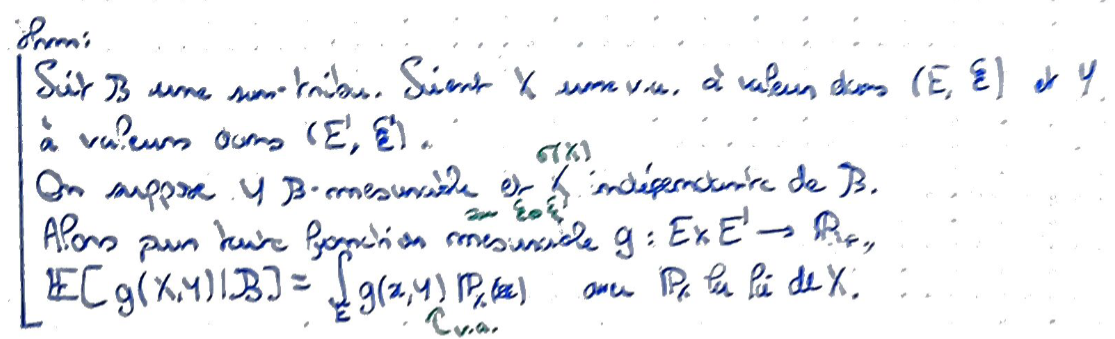 Prop:
Soit B une sous-tribu. Soient X une v.a. à valeurs dans (E, ℰ) et Y
à valeurs dans (E', ℰ').
σ(X)
On suppose Y B-mesurable et X indépendante de B.
sur ℰ⊗ℰ'
Alors pour toute fonction mesurable g : E×E' → ℝ₊,
𝔼[g(X,Y)|B] = ∫_E g(x,Y) ℙ_X(dx) avec ℙ_X la loi de X.
v.a.